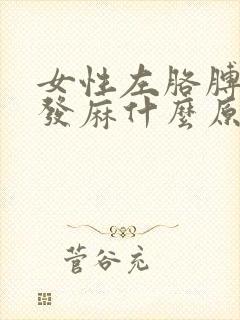 女性左胳膊
發麻什麼原
菅谷充